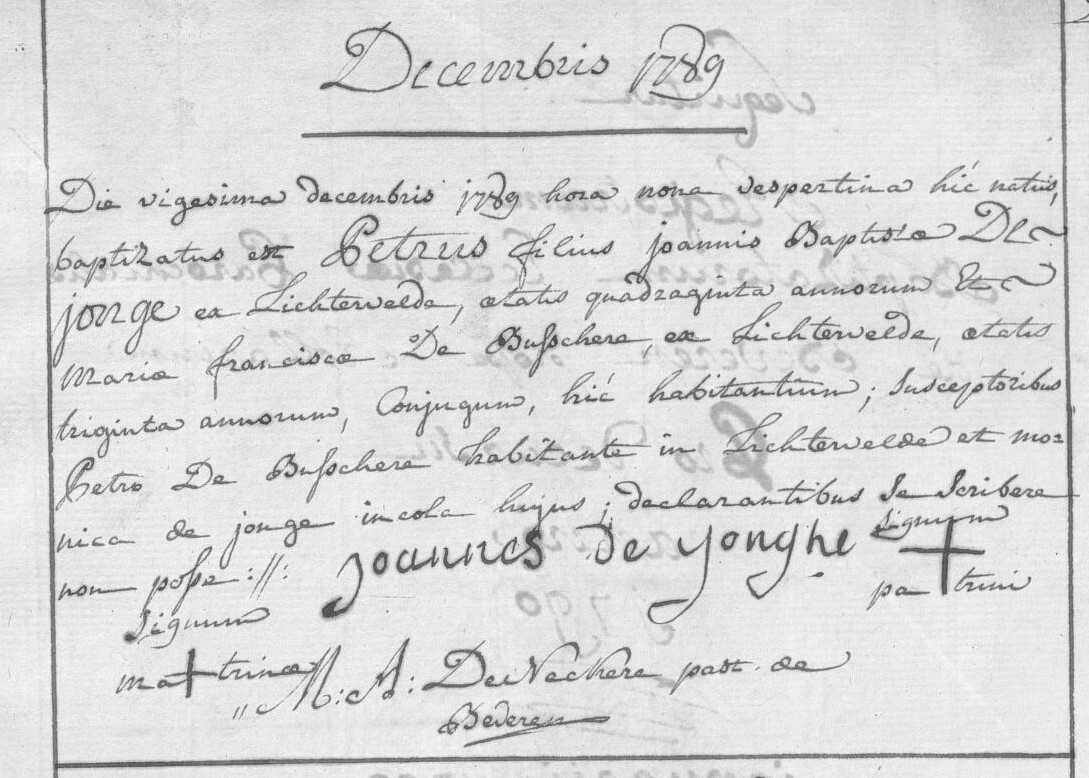 Decembris 1789
Die vigesima decembris 1789 hora nona vespertina híc natus,
baptizatus est Petrus filius joannis Baptistæ De~
jonge ex Lichtervelde, ætatis quadraginta annorum Et~
Mariæ franciscæ De Bußchere, ex Lichtervelde, ætatis
triginta annorum, Conjugum, híc habitantium; Susceptoribus
Petro De Bußchere habitante in Lichtervelde et mo=
nica de jonge incola hujus; declarantibus Se Scribere
non poße ://: joannes de yonghe Signum +
Signum pa trini
ma+trinæ
„ M: A: De Neckere past. de
Beveren